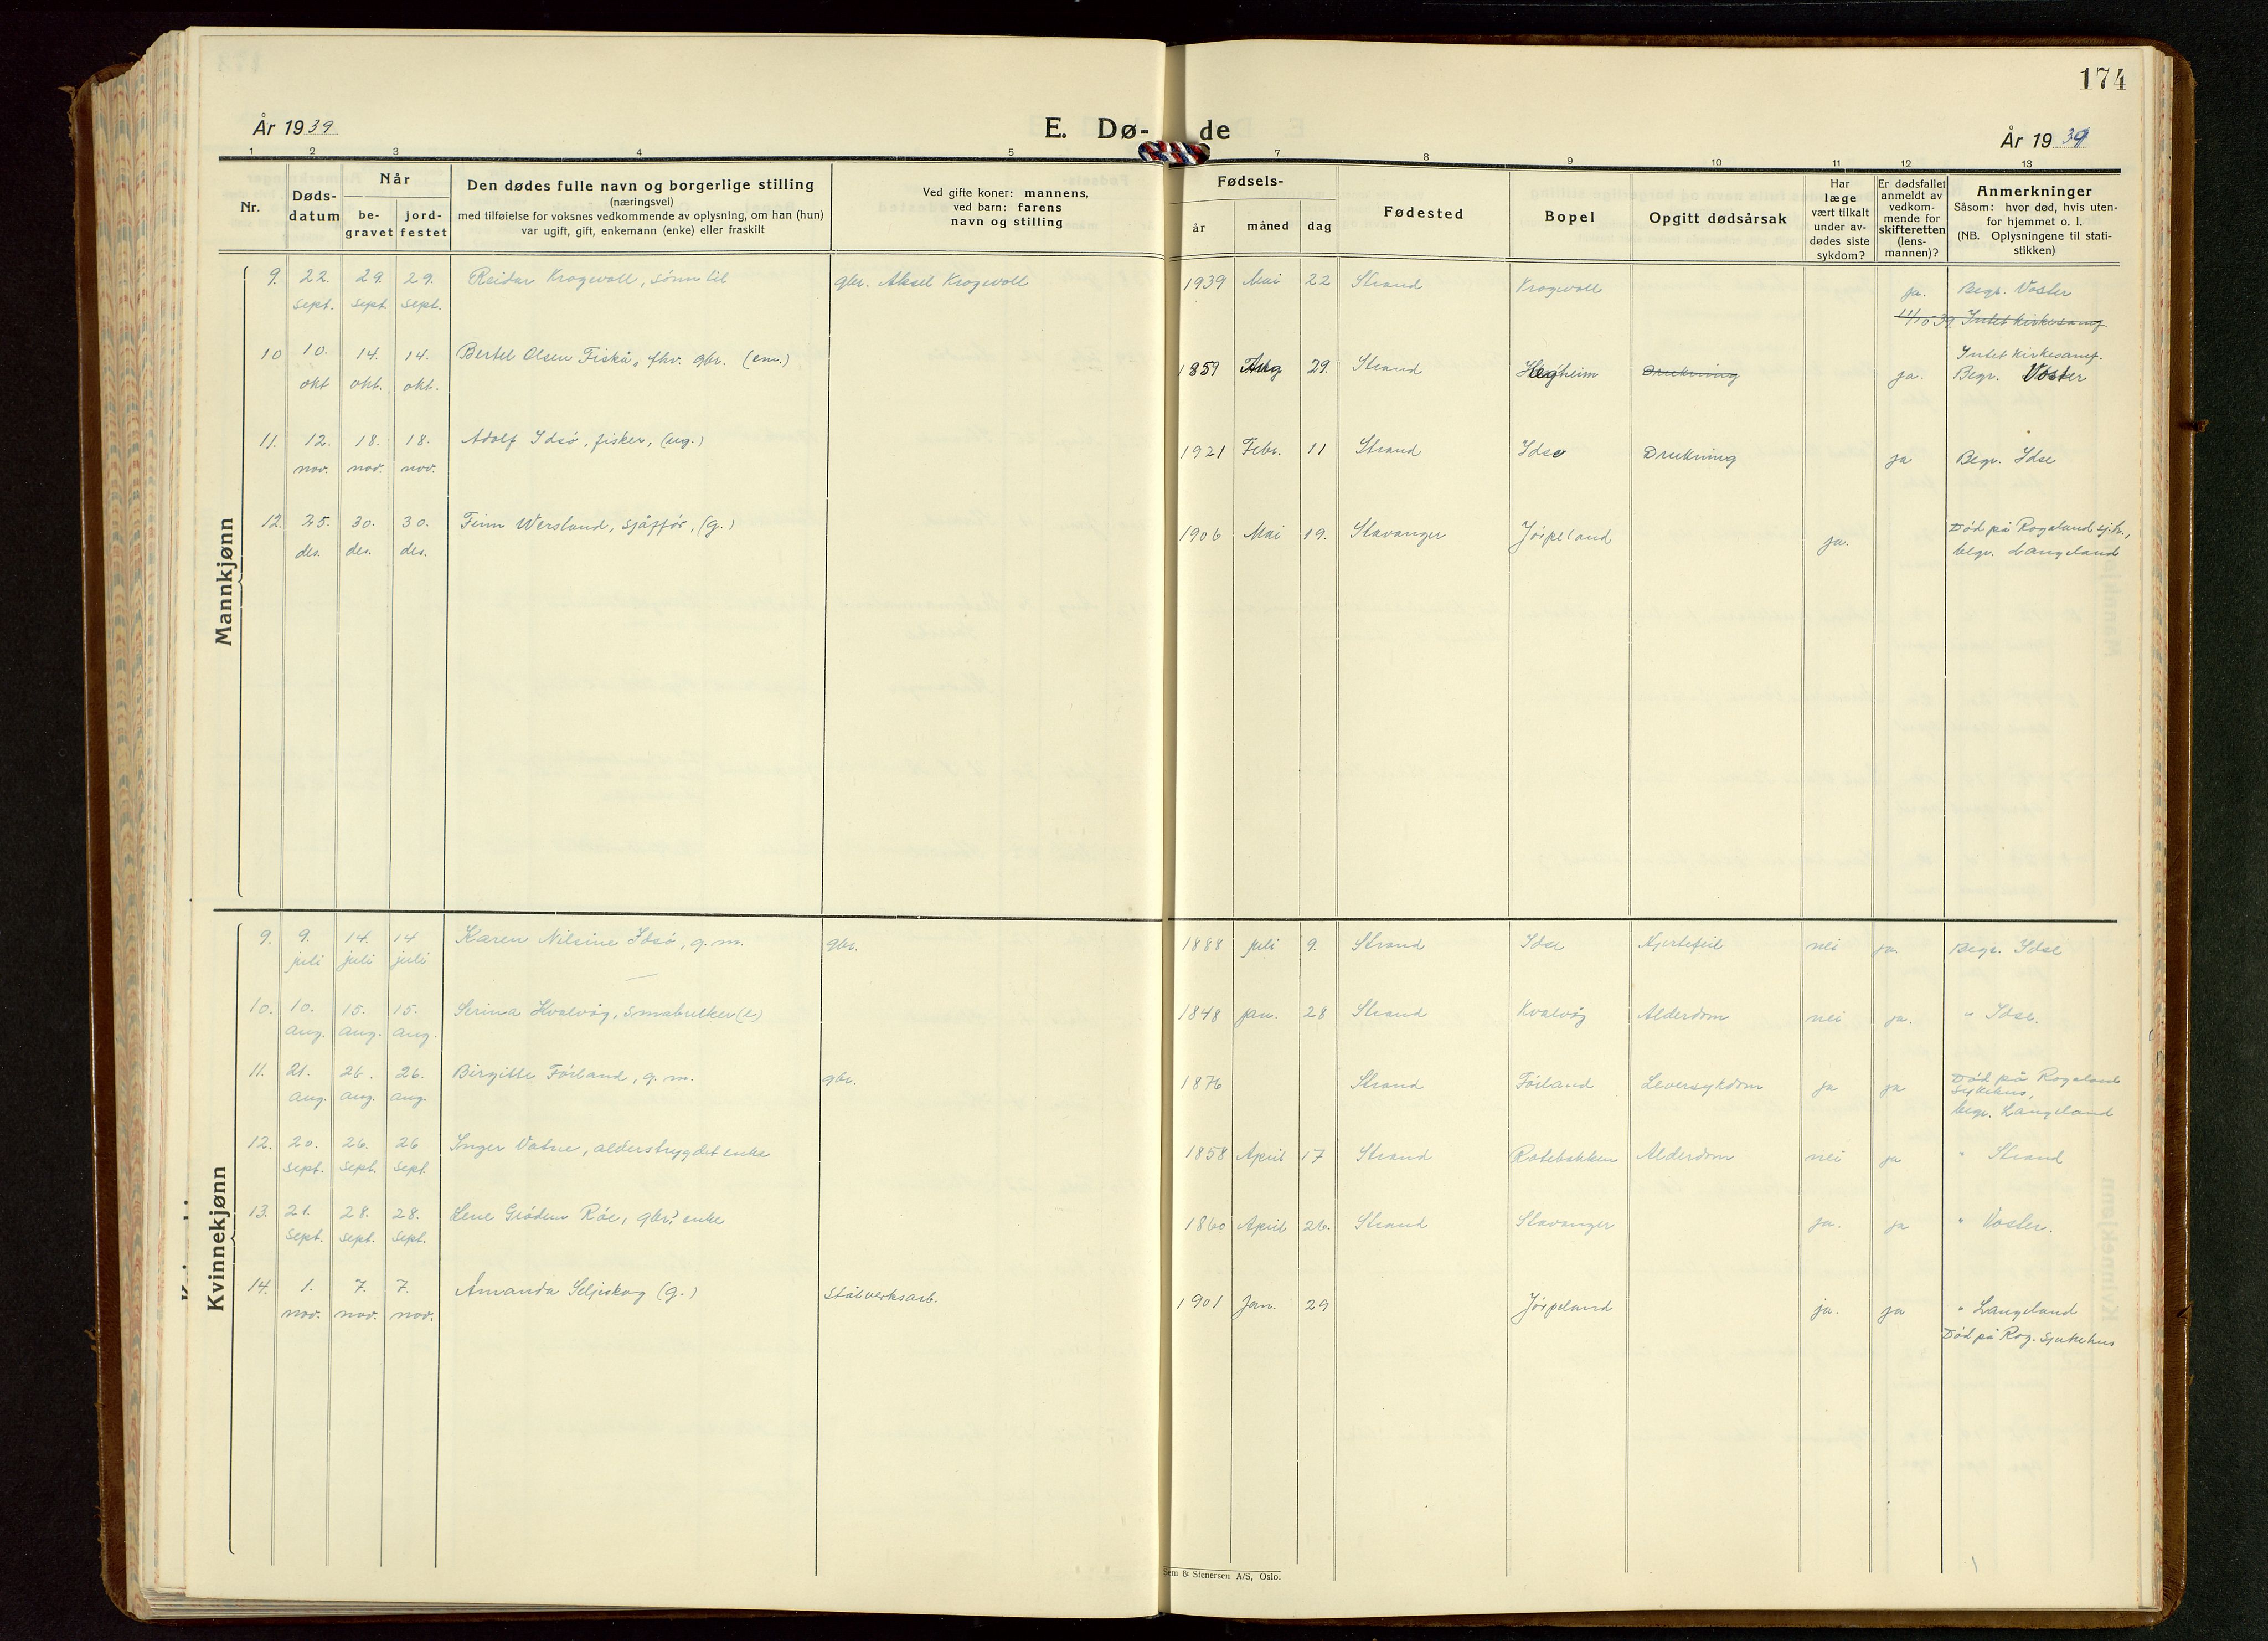 174
År 1939
E. Dø-
de
År 1939
1 2 3 4 5 7 8 9 10 11 12 13
Nr.
Døds-
datum
Når
be-
gravet
jord-
festet
Den dødes fulle navn og borgerlige stilling
(næringsvei)
med tilføielse for voksnes vedkommende av oplysning, om han (hun)
var ugift, gift, enkemann (enke) eller fraskilt
Ved gifte koner: mannens,
ved barn: farens
navn og stilling
Fødsels-
år
måned
dag
Fødested
Bopel
Opgitt dødsårsak
Har
læge
vært tilkalt
under av-
dødes siste
sykdom?
Er dødsfallet
anmeldt av
vedkom-
mende for
skifteretten
(lens-
mannen)?
Anmerkninger
Såsom: hvor død, hvis uten-
for hjemmet o. l.
(NB. Oplysningene til stati-
stikken)
Mannkjønn
9. 22. 29. 29. Reidar Krogevoll, sønn til gbr. Aksel Krogevoll 1939 Mai 22 Strand Krogevoll ja. Begr. Voster
sept. sept. sept.
11/10 39 Intet kirkesamf.
Intet kirkesamf.
10 10. 14. 14. Bertel Olsen Fiskå, fhv. gbr. (em.) 1859 Aug 29. Strand Hegheim Drukning ja. Begr. Voster
okt okt. okt.
11. 12. 18. 18. Adolf Idsø, fisker, (ug.) 1921 Febr. 11 Strand Idse Drukning ja Begr. Idse
nov. nov. nov.
12. 25. 30. 30. Finn Wersland, sjåffør, (g.) 1906 Mai 19. Stavanger Jørpeland ja. Død på Rogaland sj.h.,
des. des. des. begr. Langeland
Kvinnekjønn
9. 9. 14. 14 Karen Nilsine Idsø, g. m. gbr. 1888 juli 9. Strand Idse Hjertefeil nei ja. Begr. Idse
juli juli juli
10. 10. 15. 15. Serina Kvalvåg, småbruker (e) 1848 jan. 28 Strand Kvalvåg Alderdom nei ja. " Idse.
aug. aug. aug.
11. 21. 26. 26. Birgitte Førland, g. m. gbr. 1876 Strand Førland Leversykdom ja ja Død på Rogaland
aug. aug. aug. sykehus,
begr. Langeland
12. 20. 26. 26 Inger Vatne, alderstrygdet enke 1858 April 17 Strand Rotebakken Alderdom nei ja " Strand
sept. sept. sept.
13. 21. 28. 28. Lene Grødem Røe, gbr.s enke 1860 April 26. Strand Stavanger ja. ja " Voster.
sept. sept. sept.
14. 1. 7. 7. Amanda Seljeskog (g.) Stålverksarb. 1901 Jan. 29 Jørpeland ja. ja " Langeland
nov. nov. nov. Død på Rog. sjukehus
Sem & Stenersen A/S, Oslo.